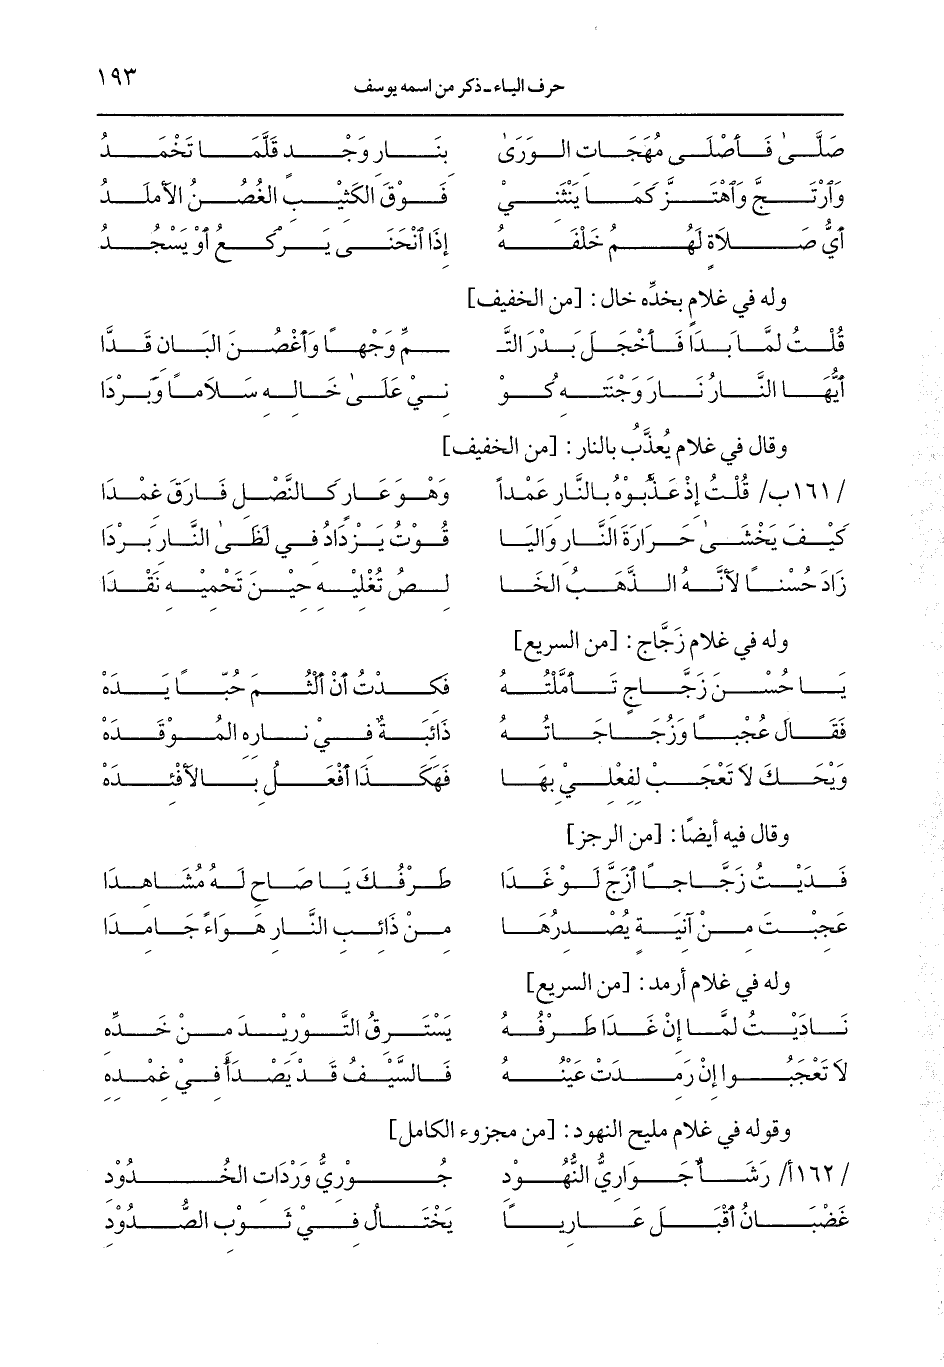 حرف الياء ـ ذكر من اسمه يوسف ١٩٣
صَلَّىٰ فَأَصْلَى مُهَجَاتِ الوَرَىٰ بِنَارِ وَجْدٍ قَلَّمَا تَخْمَدُ
وَٱرْتَجَّ وَٱهْتَزَّ كَمَا يَنْثَنِيْ فَوْقَ الكَثِيْبِ الغُصُنُ الأَملَدُ
أيُّ صَلاَةٍ لَهُمُ خَلْفَهُ إذَا ٱنْحَنَى يَرْكَعُ أوْ يَسْجُدُ
وله في غلامٍ بخدِّه خال: [من الخفيف]
قُلْتُ لَمَّا بَدَا فَأخْجَلَ بَدْرَ التَّـ ـمِّ وَجْهاً وَأغْصُنَ البَانِ قَدَّا
أيُّهَا النَّارُ نَارَ وَجْنَتِهِ كُوْ نِيْ عَلَىٰ خَالِهِ سَلاَماً وَبَرْدَا
وقال في غلامٍ يُعذَّبُ بالنار: [من الخفيف]
/١٦١ب/ قُلْتُ إذْ عَذَّبُوْهُ بِالنَّارِ عَمْداً وَهْوَ عَارٍ كَالنَّصْلِ فَارَقَ غِمْدَا
كَيْفَ يَخْشَىٰ حَرَارَةَ النَّارِ وَاليَا قُوْتُ يَزْدَادُ فِي لَظَىٰ النَّارِ بَرْدَا
زَادَ حُسْناً لأنَّهُ الذَّهَبُ الخَا لِصُ تُغْلِيْهِ حِيْنَ تَحْمِيْهِ نَقْدَا
وله في غلامٍ زَجَّاجٍ: [من السريع]
يَا حُسْنَ زَجَّاجٍ تَأمَّلْتُهُ فَكِدْتُ أنْ ألْثُمَ حُبّاً يَدَهْ
فَقَالَ عُجْباً وَزُجَاجَاتُهُ ذَائِبَةٌ فِيْ نَارِهِ المُوْقَدَهْ
وَيْحَكَ لاَ تَعْجَبْ لِفِعْلِيْ بِهَا فَهَكَذَا أفْعَلُ بِالأفْئِدَهْ
وقال فيه أيضًا: [من الرجز]
فَدَيْتُ زَجَّاجاً أزَجَّ لَوْ غَدَا طَرْفُكَ يَا صَاحِ لَهُ مُشَاهِدَا
عَجِبْتَ مِنْ آنِيَةٍ يُصْدِرُهَا مِنْ ذَائِبِ النَّارِ هَوَاءً جَامِدَا
وله في غلامٍ أرمد: [من السريع]
نَادَيْتُ لَمَّا إنْ غَدَا طَرْفُهُ يَسْتَرِقُ التَّوْرِيْدَ مِنْ خَدِّهِ
لاَ تَعْجَبُوا إنْ رَمِدَتْ عَيْنُهُ فَالسَّيْفُ قَدْ يَصْدَأُ فِيْ غِمْدِهِ
وقوله في غلامٍ مليح النهود: [من مجزوء الكامل]
/١٦٢أ/ رَشَأٌ جَوَارِيُّ النُّهُوْدِ جُوْرِيُّ وَرْدَاتِ الخُدُوْدِ
غَضْبَانُ أقْبَلَ عَارِياً يَخْتَالُ فِيْ ثَوْبِ الصُّدُوْدِ